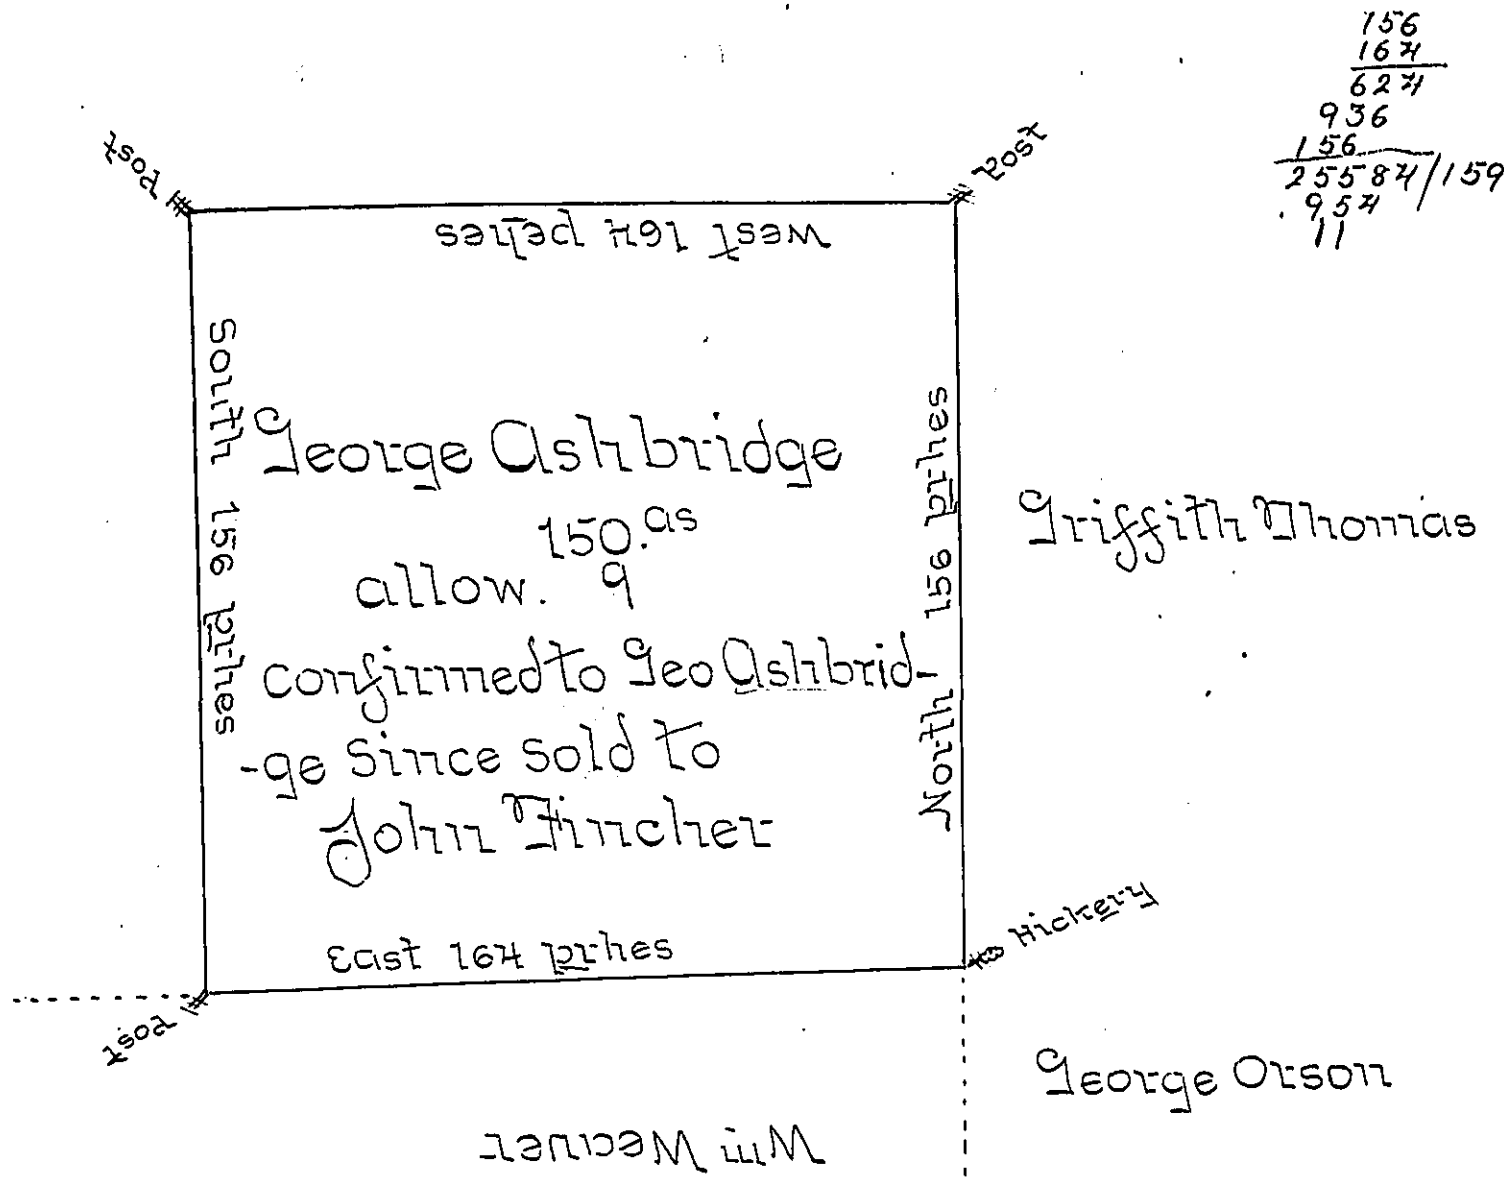 156
164
624
936
156
25584/159
.954
11
Post
Post
West 164 pches
South 156 prhes
George Ashbridge
150.as
allow. 9
confirmed to Geo Ashbrid-
-ge Since Sold to
John Fincher
North 156 prhes
Griffith Thomas
East 164 prhes
Hickery
Post
George Orson
Wm Weaver